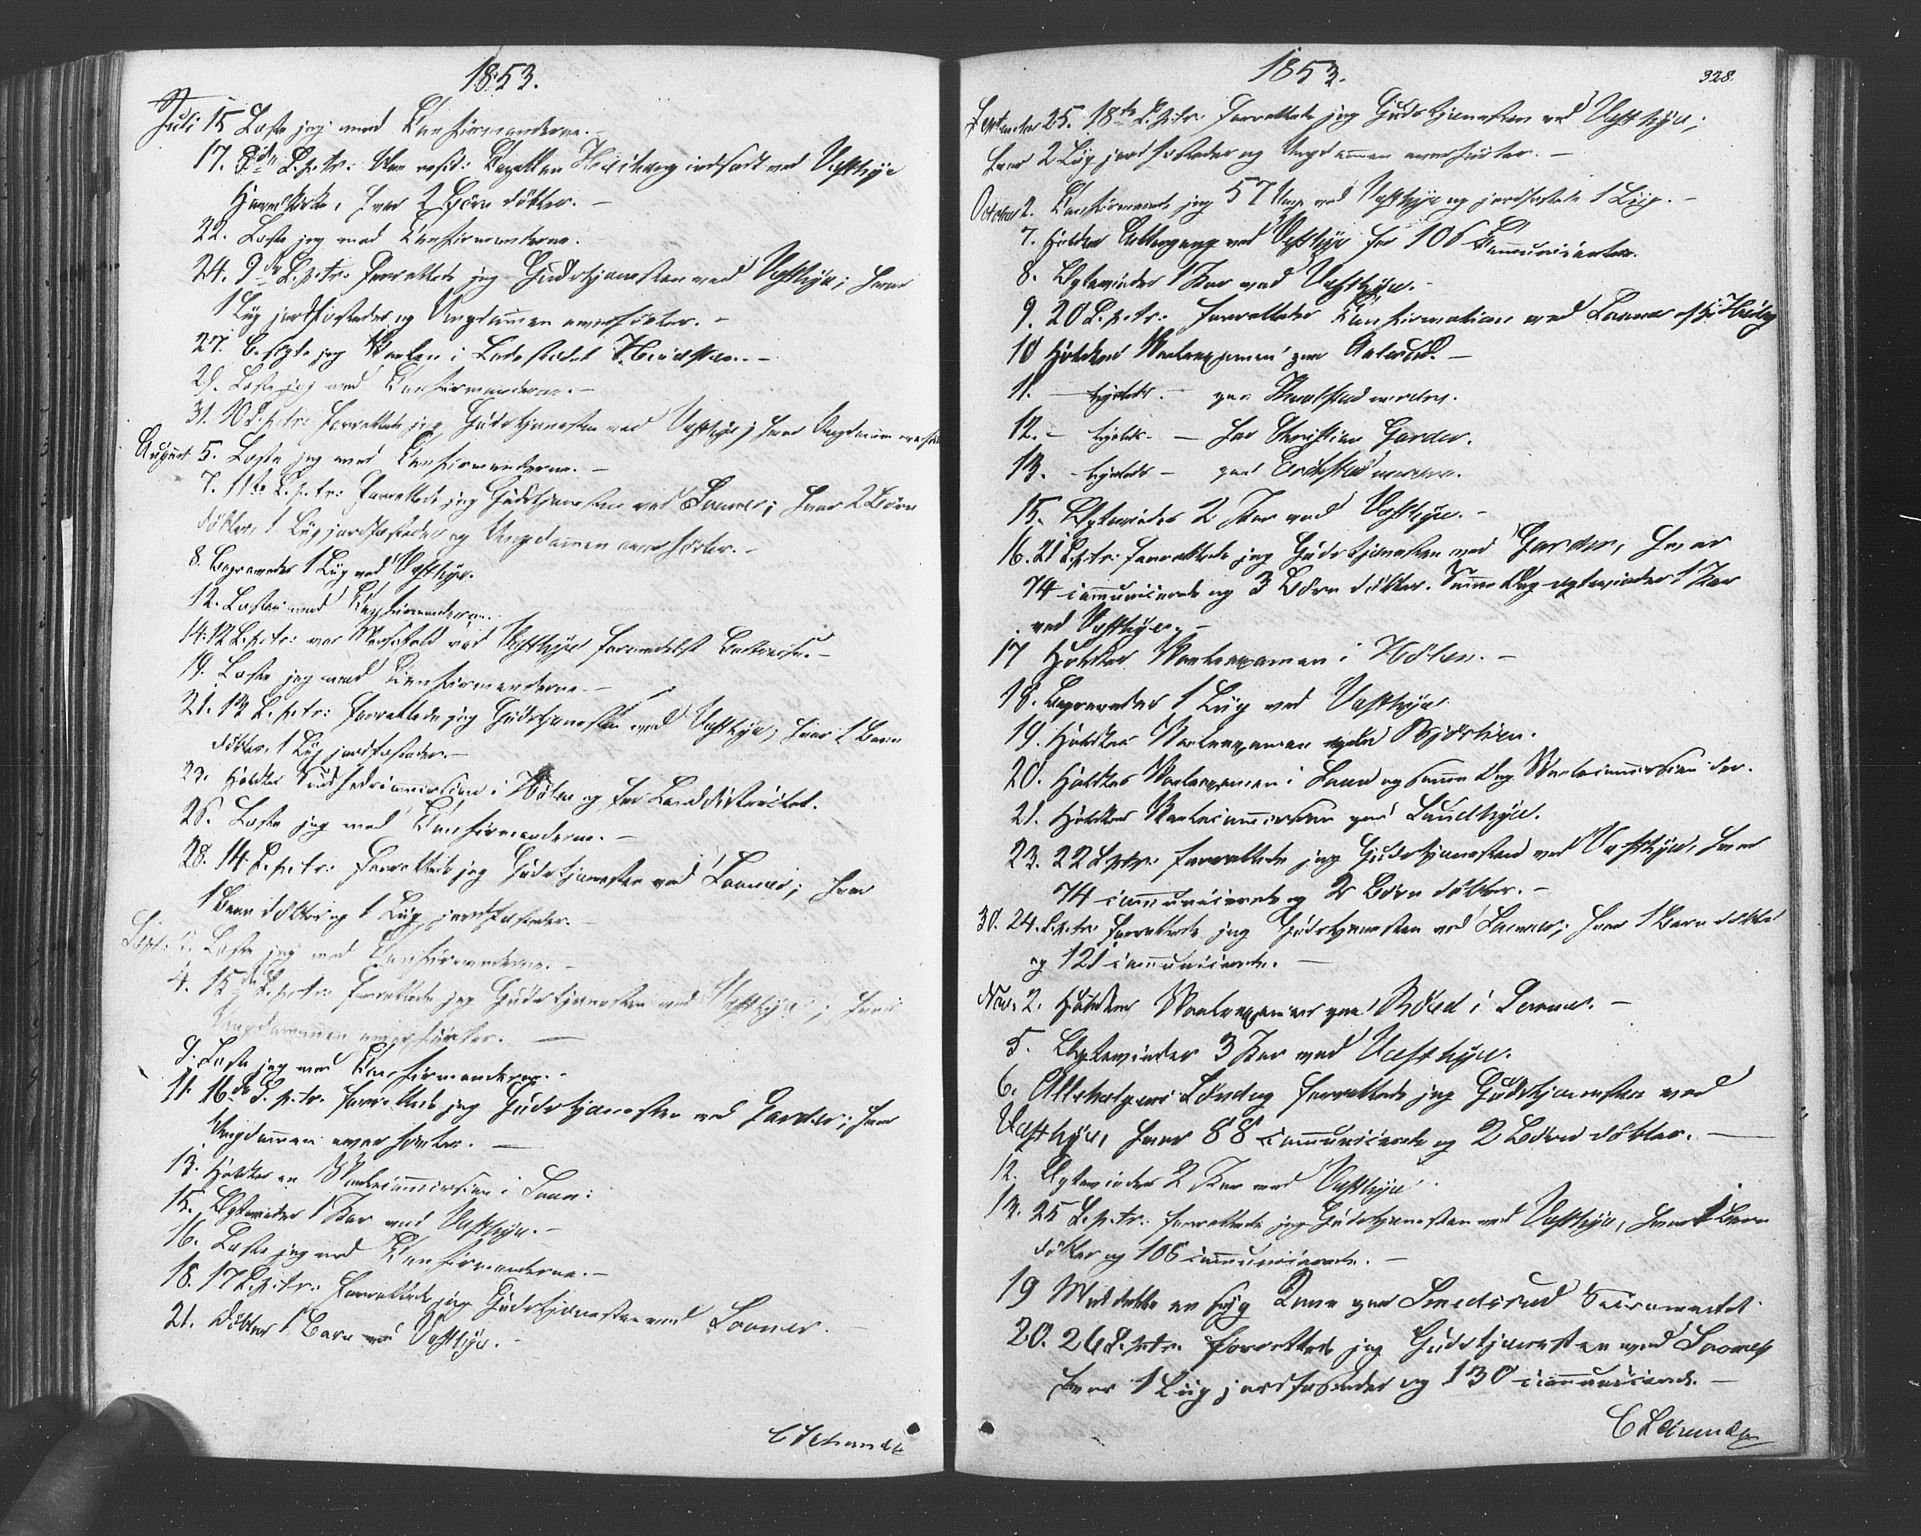 1853.
Juli 15 Læste jeg med Confirmanderne.
17. 8de S. p. tr: blev resid: Capellan indsat ved Vestbye
Hovedkirke, hvor 2 Børn døbtes. –
22. Læste jeg med Confirmanderne.
24. 9de S. p. tr: forrettede jeg Gudstjenesten ved Vestbye; hvor
1 Liig jordfæstedes og Ungdommen overhørtes. –
27. besøgte jeg Skolen i Ladestedet
29. Læste jeg med Confirmanderne. –
31. 10 S. p. tr: forrettede jeg Gudstjenesten ved Vestbye; hvor Ungdommen
August 5. Læste jeg med Confirmanderne. –
7. 11te S. p. tr: forrettede jeg Gudstjenesten ved Soner; hvor 2 Børn
døbtes, 1 Liig jordfæstedes og Ungdommen overhørtes. –
8. Begravedes 1 Liig ved Vestbye.
12. Læstes med Confirmanderne.
14. 12 S. p. tr: var Messefald ved Vestbye
19. Læste jeg med Confirmanderne –
21. 13 S. p. tr: forrettede jeg Gudstjenesten ved Vestbye, hvor 1 Barn
døbtes, 1 Liig jordfæstedes. –
23. Holdtes Sundhedscommission i Hølen og for Landdistrictet.
26. Læste jeg med Confirmanderne. –
28. 14 S. p. tr: forrettede jeg Gudstjenesten ved Soner; hvor
1 Barn døbtes og 1 Liig jordfæstedes.
Sept. 2. Læste jeg med Confirmanderne. –
4. 15de S. p. tr: forrettede jeg Gudstjenesten ved Vestbye; hvor
Ungdommen overhørtes. –
9. Læste jeg med Confirmanderne. –
11. 16de S. p. tr. forrettede jeg Gudstjenesten ved Garder; hvor
Ungdommen overhørtes. –
13. Holdtes en Skolecommission i Soon:
15. Egteviedes 1 Par ved Vestbye. –
16. Læste jeg med Confirmanderne. –
18. 17 S. p. tr: forrettede jeg Gudstjenesten ved Soner. –
21. Døbtes 1 Barn ved Vestbye. –
1853.
328.
September 25. 18de S. p. tr: forrettede jeg Gudstjenesten ved Vestbye;
hvor 2 Liig jordfæstedes og Ungdommen overhørtes. –
October 2. Confirmerede jeg 57 Unge ved Vestbye og jordfæstede 1 Liig. –
7. Holdtes Altergang ved Vestbye for 106 Communicanter.
8. Egteviedes 1 Par ved Vestbye. –
9. 20 S. p. tr: forrettedes Confirmation ved Soner
10 Holdtes Skoleexamen paa –
11. – ligeledes – paa
12. – ligelds. – for Christian Garder.
13. – ligeleds – paa
15. Egteviedes 2 Par ved Vestbye. –
16. 21 S. p. tr: forrettede jeg Gudstjenesten ved Garder, hvor
74 communicerede og 3 Børn døbtes. Samme Dag egteviedes 1 Par
ved Vestbye. –
17 Holdtes Skoleexamen i Hølen. –
18. Begravedes 1 Liig ved Vestbye.
19. Holdtes Skoleexamen
20. Holdtes Skoleexamen i Soon og samme Dag Skolecommission der.
21. Holdtes Skolecommission paa Sundbye.
23. 22 S. p. tr: forrettede jeg Gudstjenesten ved Vestbye, hvor
74 communicerede og 2 Børn døbtes. –
30. 24. S. p. tr: forrettede jeg Gudstjenesten ved Soner; hvor 1 Barn døbtes
og 121 communicerede. –
Nov. 2. Holdtes Skoleexamen paa i Soner. –
5. Egteviedes 3 Par ved Vestbye.
6. Allehelgens Søndag forrettede jeg Gudstjenesten ved
Vestbye, hvor 88 communicerede og 2 Børn døbtes. –
12. Egteviedes 2 Par ved Vestbye
13. 25 S. p. tr: forrettede jeg Gudstjenesten ved Vestbye, hvor 1 Barn
døbtes og 106 communicerede. –
19 Meddeltes en syg Kone paa Smedsrud Sacramentet
20. 26 S. p. tr. forrettede jeg Gudstjenesten ved Soner
hvor 1 Liig jordfæstedes og 130 communicerede. –